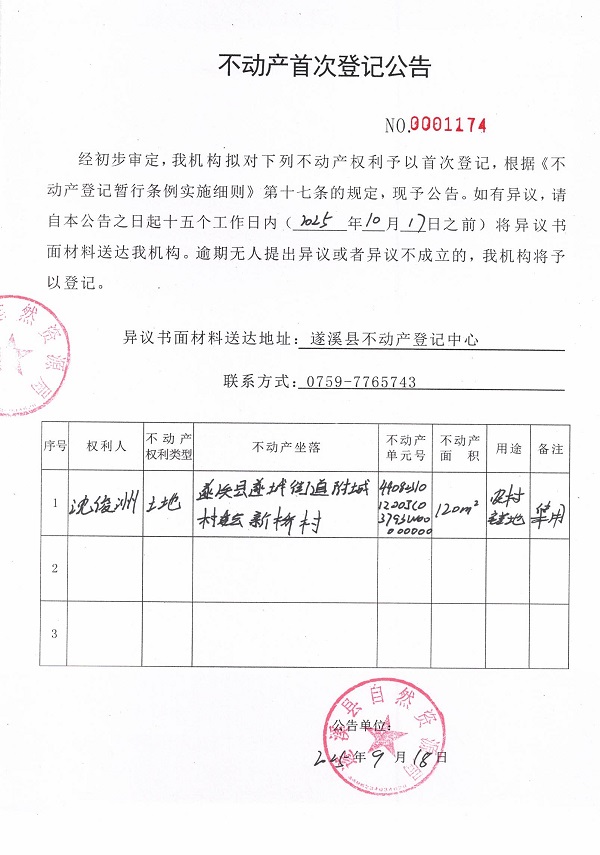 不动产首次登记公告
NO.0001174
经初步审定，我机构拟对下列不动产权利予以首次登记，根据《不
动产登记暂行条例实施细则》第十七条的规定，现予公告。如有异议，请
自本公告之日起十五个工作日内（2025 年10月17日之前）将异议书
面材料送达我机构。逾期无人提出异议或者异议不成立的，我机构将予
以登记。
异议书面材料送达地址：遂溪县不动产登记中心
联系方式：0759-7765743
序号 权利人 不动产权利类型 不动产坐落 不动产单元号 不动产面积 用途 备注
1 沈俊洲 土地 遂溪县遂城街道附城 120m² 农村
新桥村
2
3
遂溪县自然资源局
公告单位：
2025年9月18日
然资源局